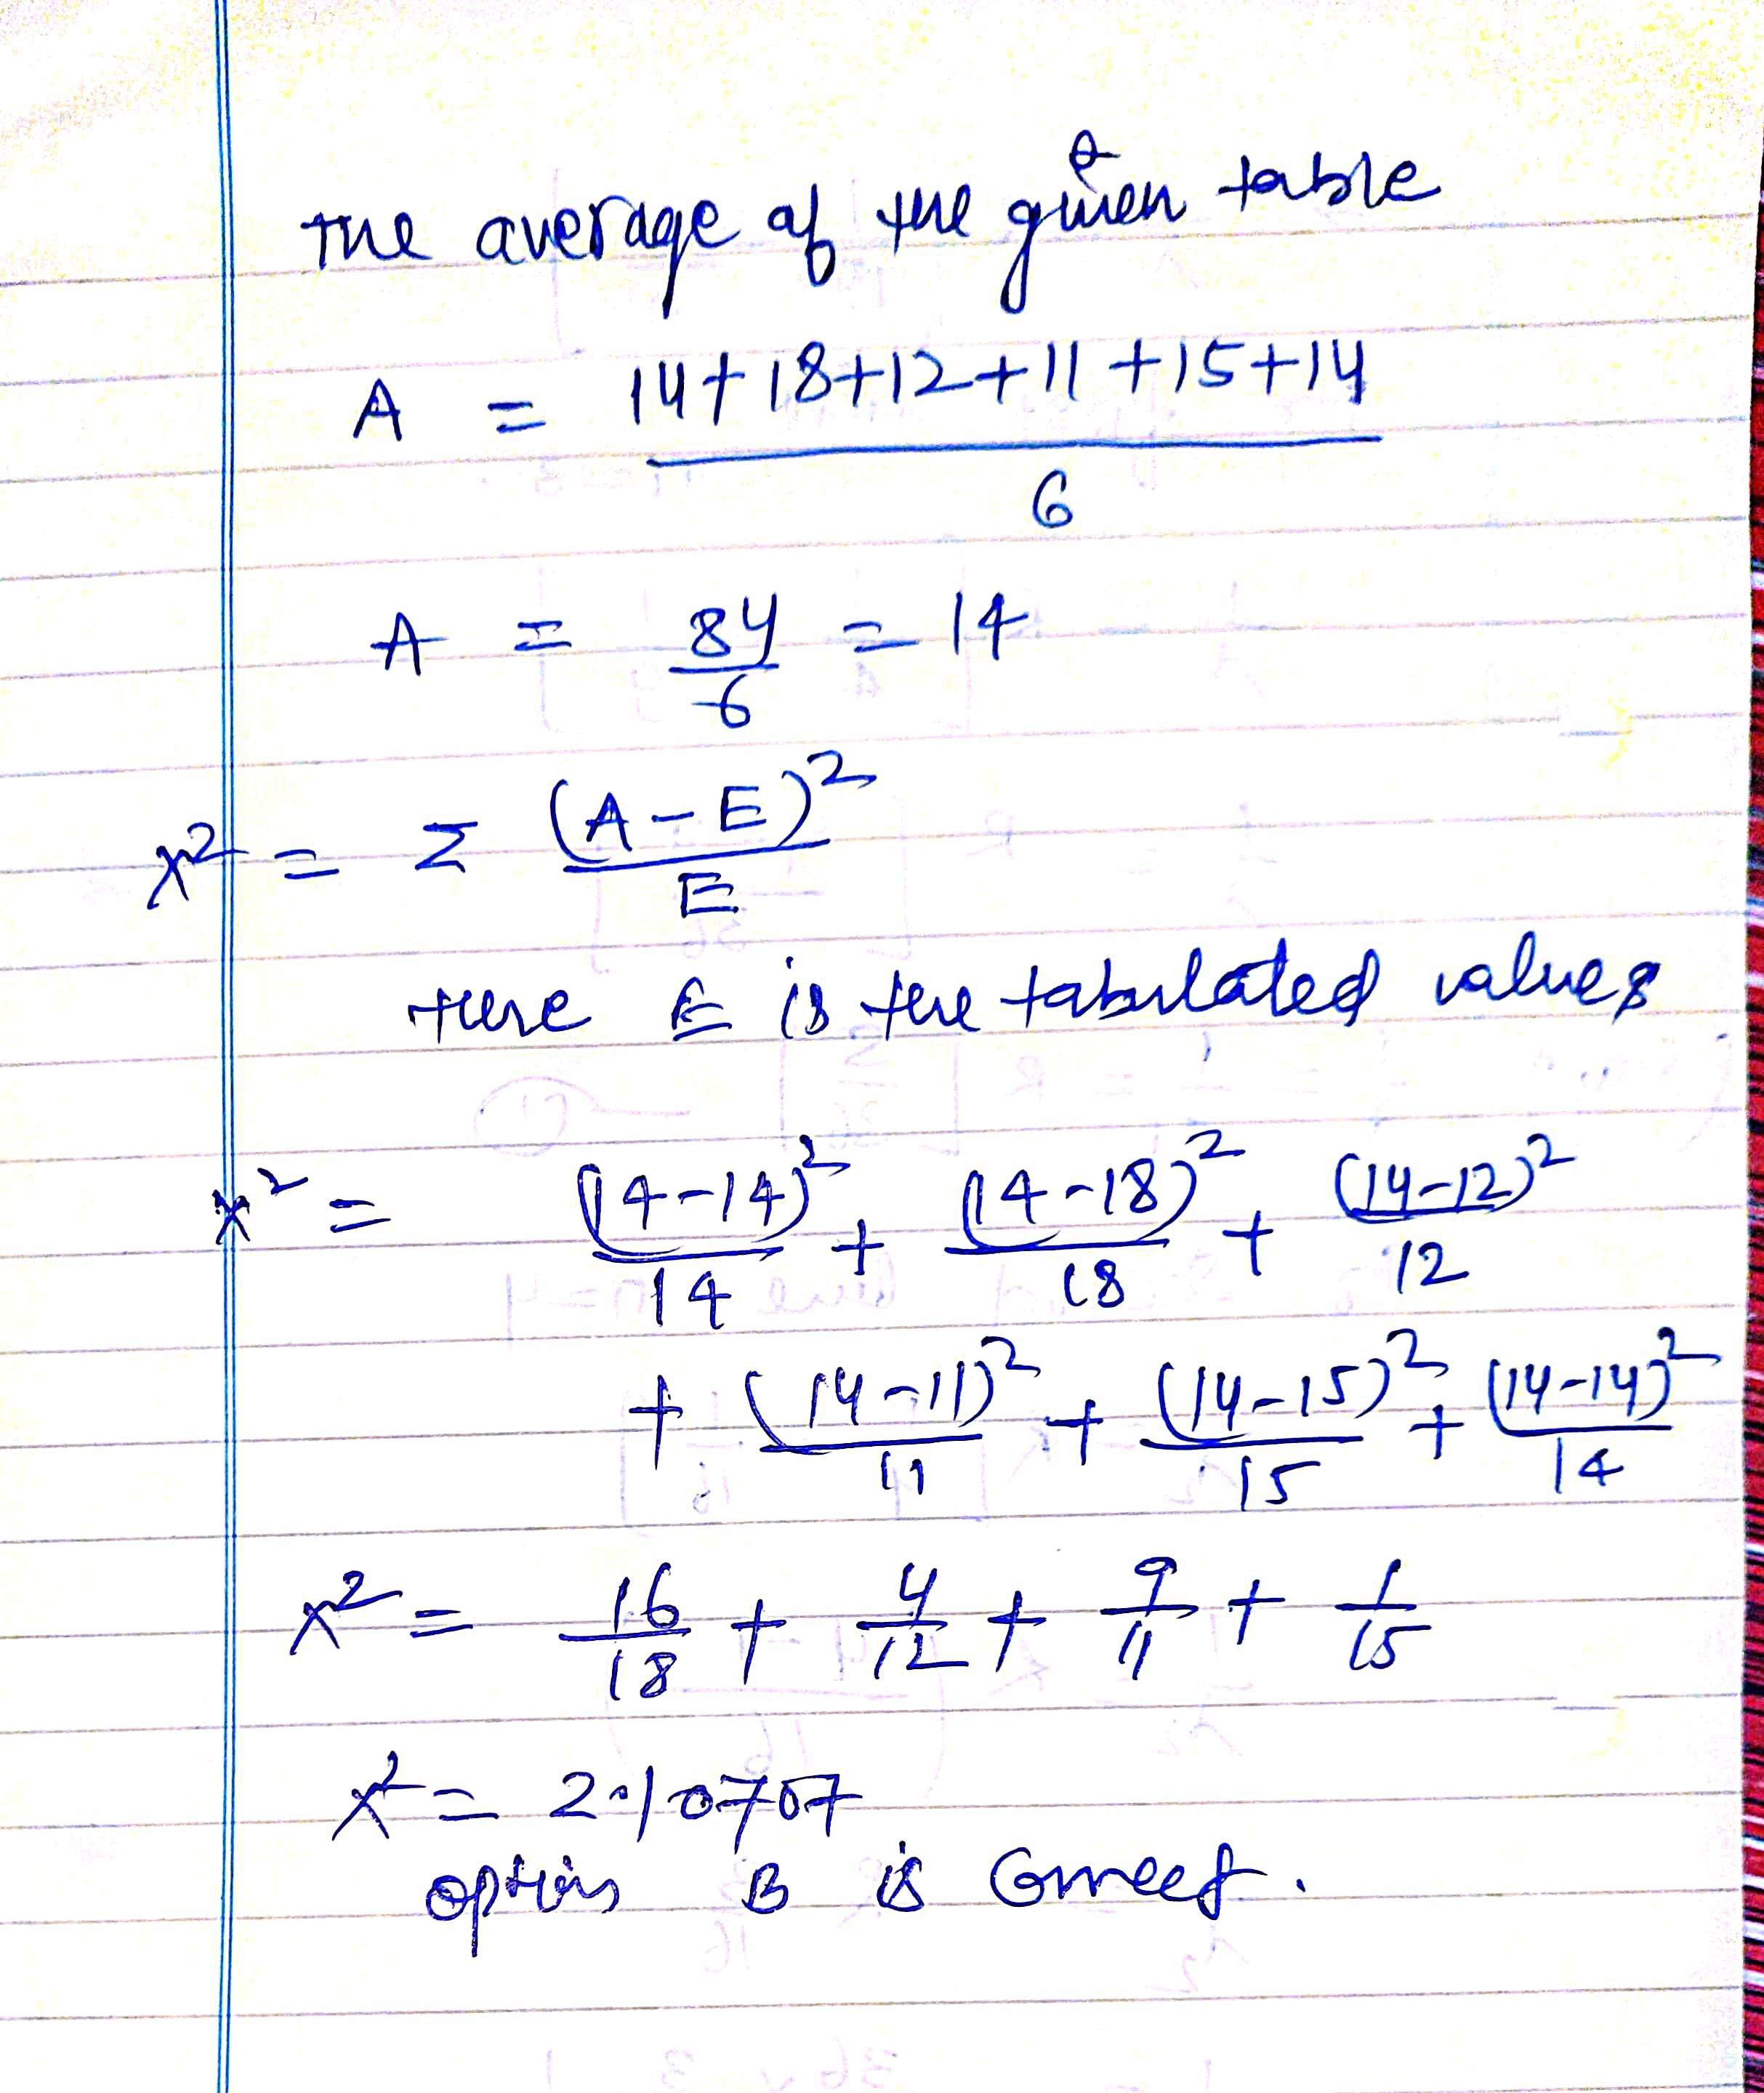 The average of the given table
A = 14+18+12+11+15+14 / 6
A = 84/6 = 14
x² = Σ (A-E)² / E
Here E is the tabulated values
x² = (14-14)²/14 + (14-18)²/18 + (14-12)²/12
+ (14-11)²/11 + (14-15)²/15 + (14-14)²/14
x² = 16/18 + 4/12 + 9/11 + 1/15
x² = 2.10707
option B is Correct.